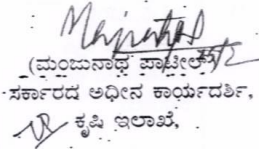 (ಮಂಜುನಾಥ ಪಾಟೀಲ್)
ಸರ್ಕಾರದ ಅಧೀನ ಕಾರ್ಯದರ್ಶಿ,
ಕೃಷಿ ಇಲಾಖೆ,